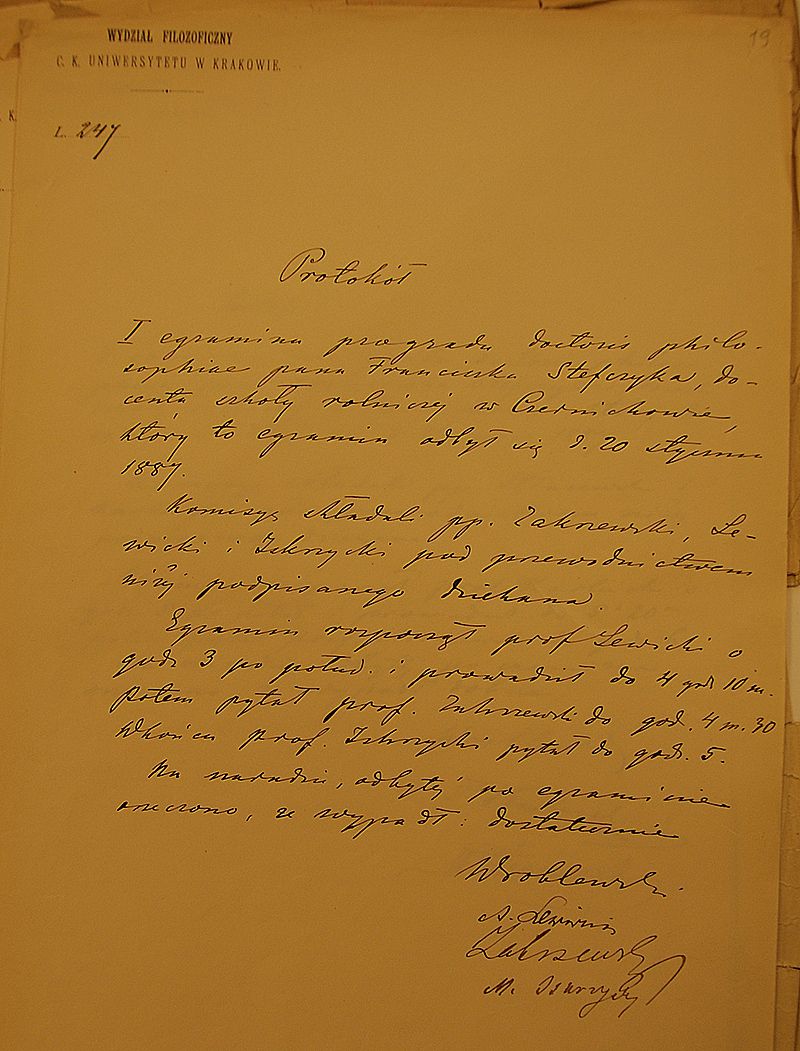 19
WYDZIAŁ FILOZOFICZNY
C. K. UNIWERSYTETU W KRAKOWIE.
L. 247
Protokół
I egzaminu pro gradu doctoris philo-
sophiae pana Franciszka Stefczyka, do-
centa szkoły rolniczej w Czernichowie,
który to egzamin odbył się d. 20 stycznia
1887.
Komisyę składali pp. Zakrzewski, Le-
wicki i Iskrzycki pod przewodnictwem
niżéj podpisanego dziekana.
Egzamin rozpoczął prof Lewicki o
godz 3 po połud. i prowadził do 4 godz 10 m.
Potem pytał prof. Zakrzewski do god. 4 m. 30
Wkońcu prof. Iskrzycki pytał do godz. 5.
Na naradzie, odbytéj po egzaminie
orzeczono, że wypadł: dostatecznie
Wróblewski
A. Lewicki
Zakrzewski
M.